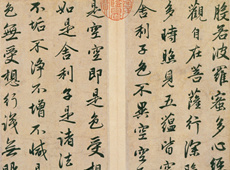 般若波羅蜜多心經
觀自在菩薩行深
多時照見五蘊皆
舍利子色不異空空
是空空即是色受想
如是舍利子是諸法
不垢不淨不增不減是
色無受想行識無眼